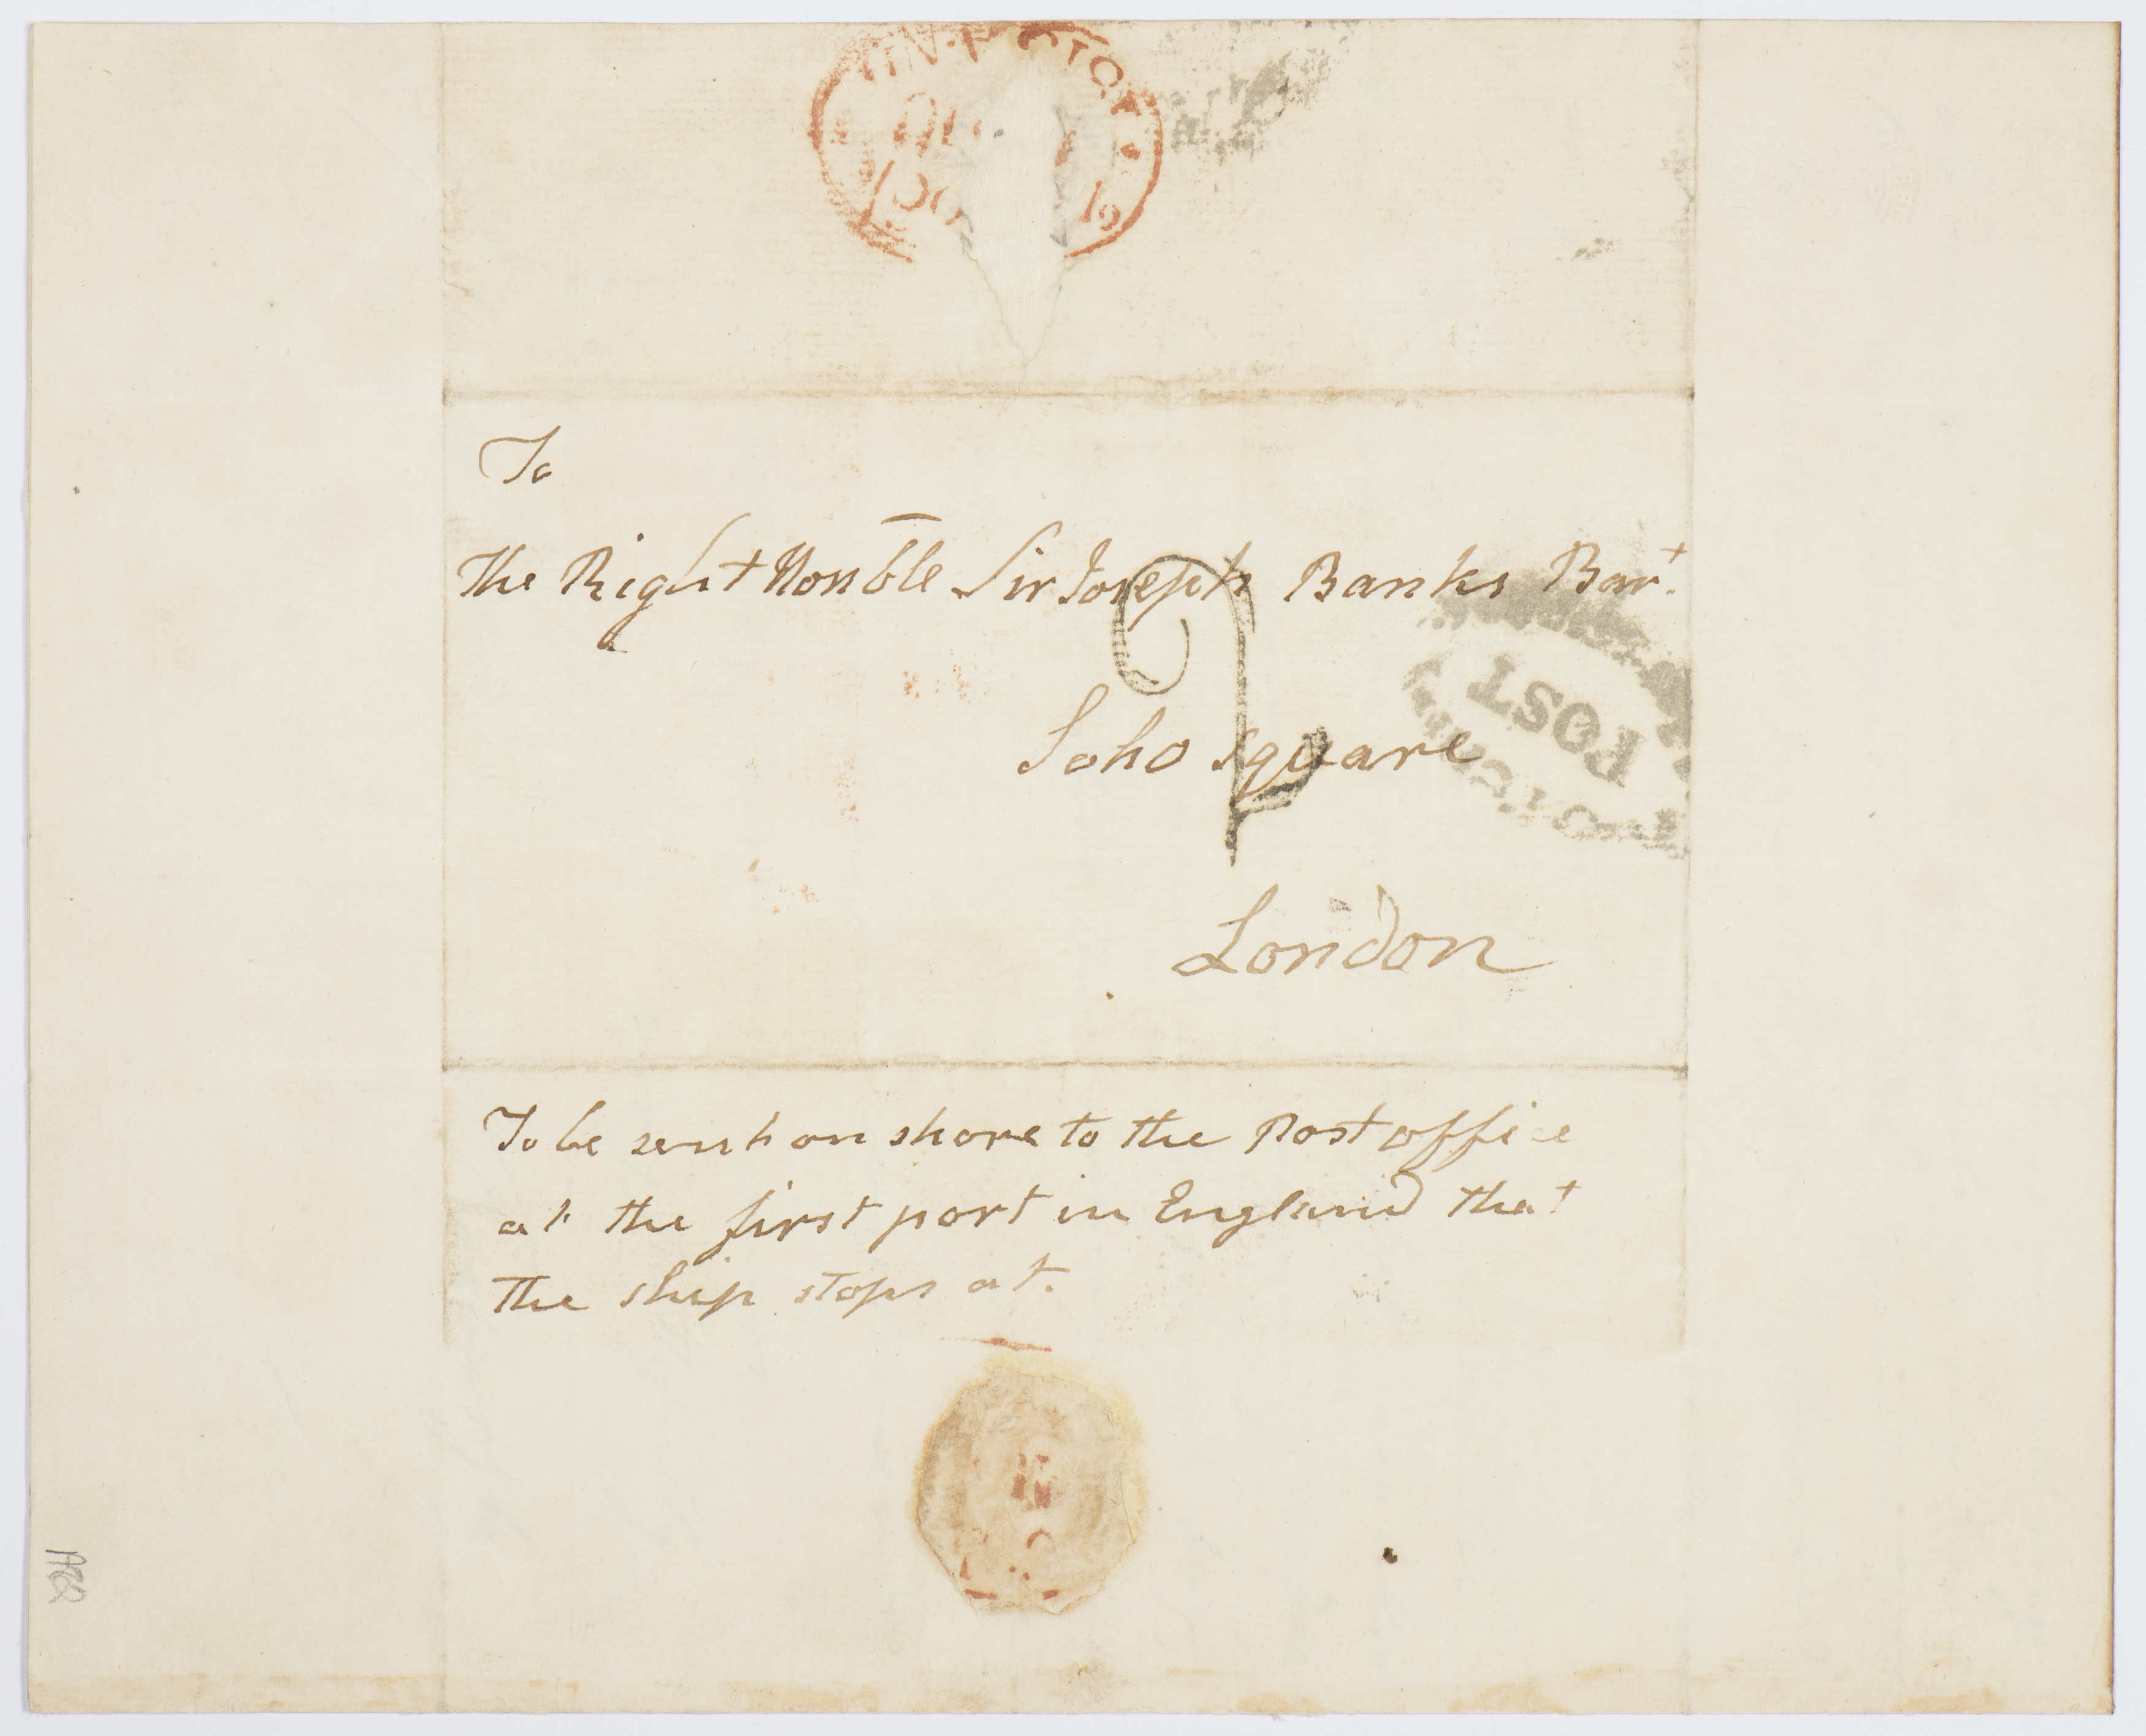 To
The Right Honble Sir Joseph Banks Bart.
POST
Soho Square
London
To be sent on shore to the Post office
at the first port in England that
the ship stops at.